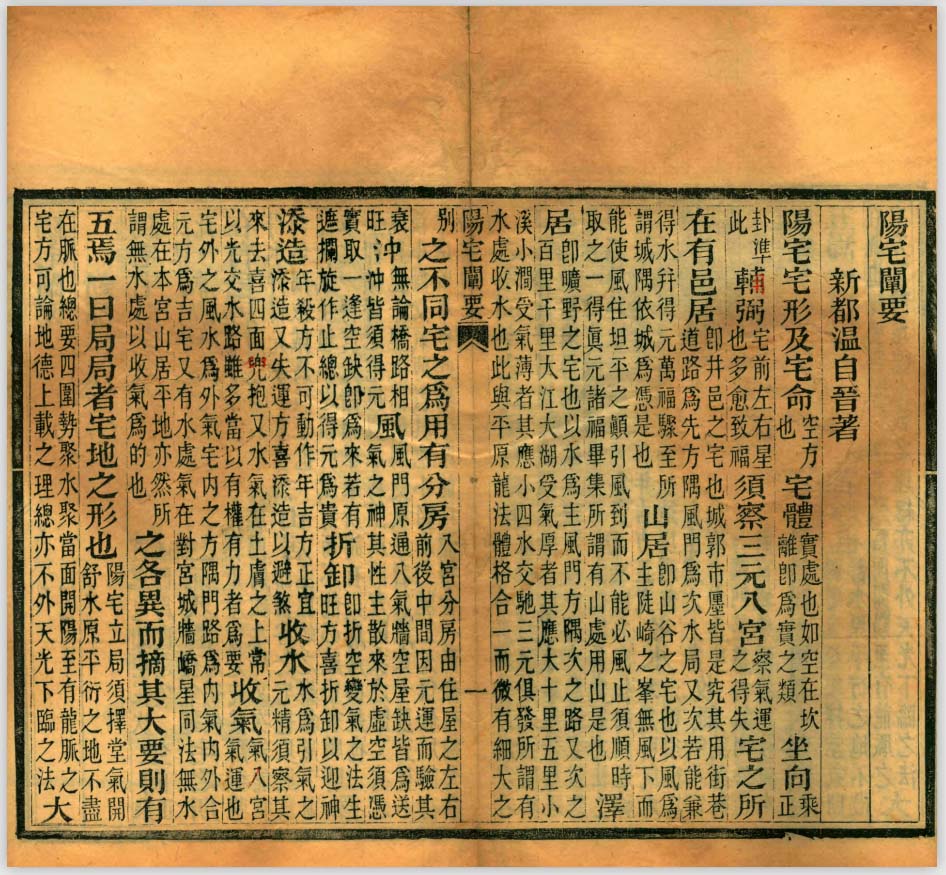 陽宅闡要
新都温自晉著
陽宅宅形及宅命空方也宅體實處也如空在坎離卽爲實之類坐向乘正
卦準此輔弼宅前左右星也多愈致福須察三元八宮察氣運之得失宅之所
在有邑居卽井邑之宅也城郭市廛皆是究其用街巷道路爲先方隅風門爲次水局又次若能兼
得水幷得元萬福驟至所謂城隅依城爲憑是也山居卽山谷之宅也以風爲主陡崎之峯無風下而
能使風住坦平之顚引風到而不能必風止須順時取之一得眞元諸福畢集所謂有山處用山是也澤
居卽曠野之宅也以水爲主風門方隅次之路又次之百里千里大江大湖受氣者厚者其應大十里五里小
溪小澗受氣薄者其應小四水交馳三元俱發所謂有水處收水水也此與平原龍法體格合一而微有細大之
陽宅闡要 一
別之不同宅之爲用有分房入宮分房由住屋之左右前後中間因元運而驗其
衰旺冲無論橋路相冲皆須得元風風門原通八氣牆空屋缺皆爲送氣之神其性主散來於虛空須憑
實取一逢空缺卽爲來若有遮攔旋作止總以得元爲貴折卸卽折空變氣之法生旺方喜折卸以迎神
添造年殺方不可動作年吉方正宜添造又失運方喜添造以避煞收水水爲引氣之元精須察其
來去喜四面兜抱又水氣在土膚之上常以光交水路雖多當以有權有力者爲要收氣氣入宮氣運也
宅外之風水爲外氣宅內之方隅門路爲內氣內外合元方爲吉宅又有水處氣在對宮城牆嶠星同法無水
處在本宮山居平地亦然所謂無水處以收氣爲的也之各異而摘其大要則有
五焉一曰局局者宅地之形也陽宅立局須擇堂氣開舒水原平衍之地不盡
在脈也總要四圍勢聚水聚當面開陽至有龍脈之宅方可論地德上載之理總亦不外天光下臨之法大